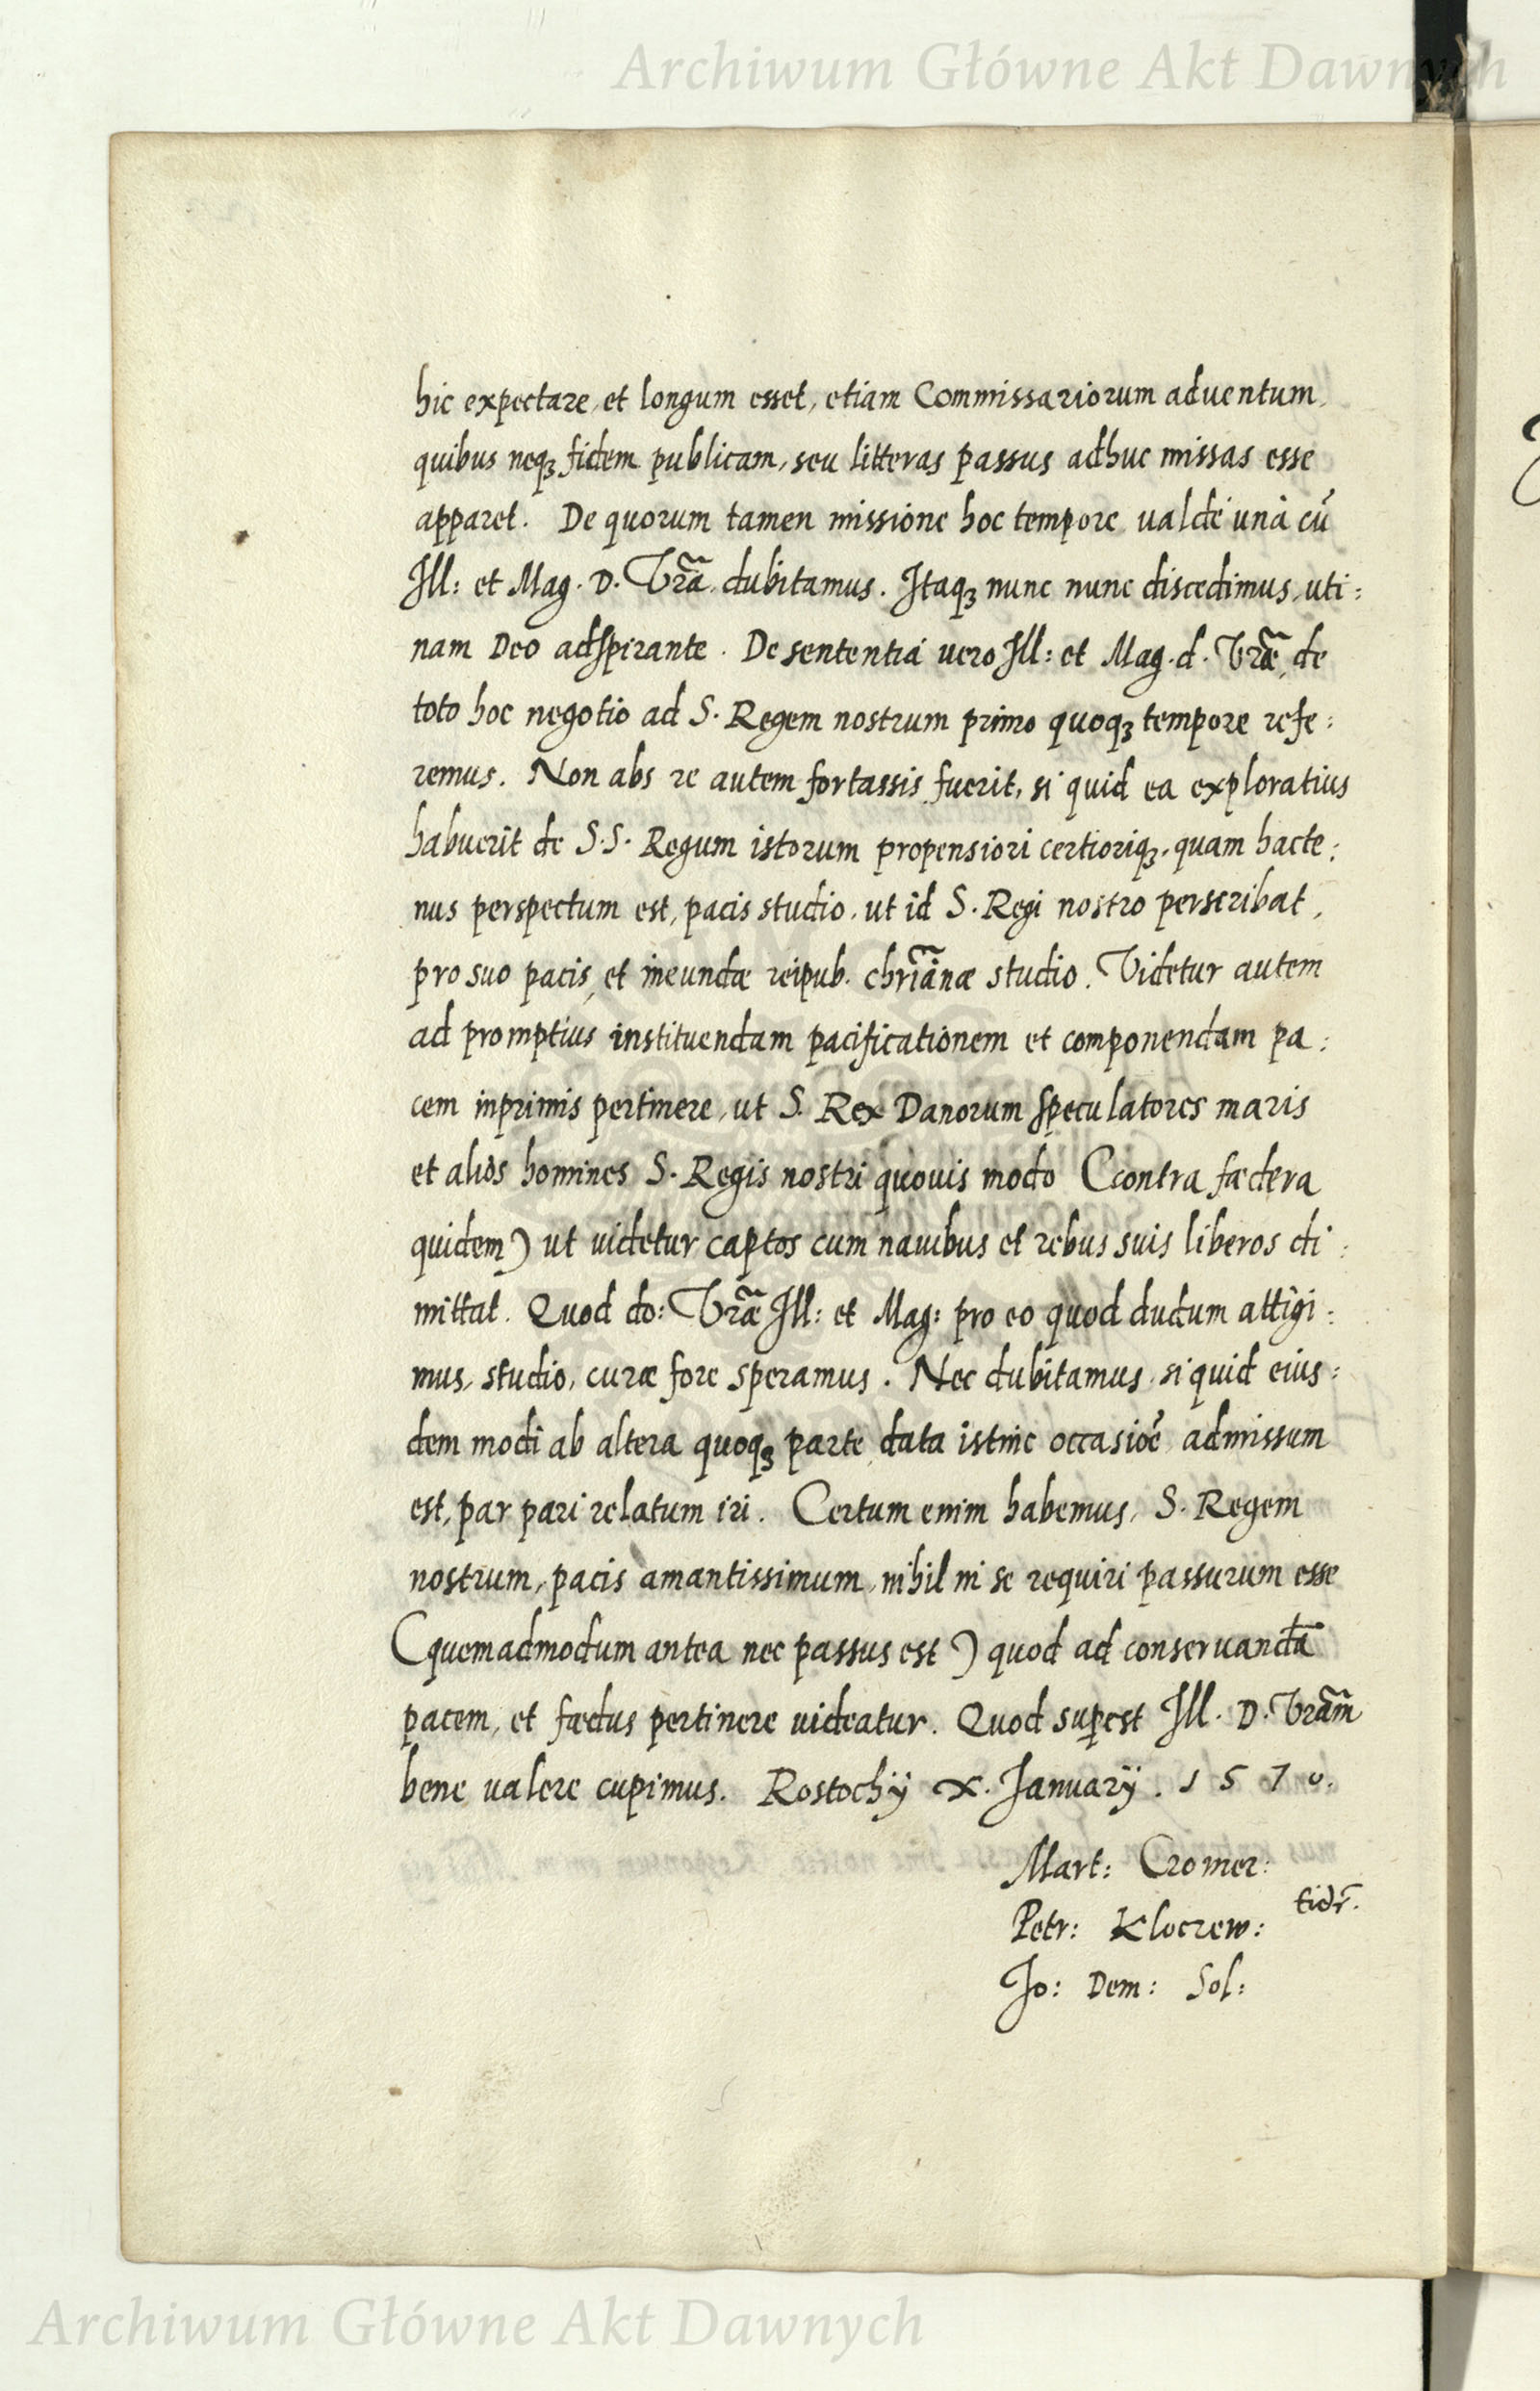 Archiwum Główne Akt Dawnych
hic expectare, et longum esset, etiam Commissariorum aduentum,
quibus neqꝫ fidem publicam, seu litteras passus adhuc missas esse
apparet. De quorum tamen missione hoc tempore ualdè unà cũ
Ill: et Mag. D. Vr̃a, dubitamus. Itaqꝫ nunc nunc discedimus, uti:
nam Deo adspirante. De sententia uero Ill: et Mag. d. Vr̃æ, de
toto hoc negotio ad S. Regem nostrum primo quoqꝫ tempore refe:
remus. Non abs re autem fortassis fuerit, si quid ea exploratius
habuerit de S.S. Regum istorum propensiori certioriqꝫ, quam hacte:
nus perspectum est, pacis studio, ut id S. Regi nostro perscribat,
pro suo pacis, et ineundæ reipub. chr̃ianæ studio. Videtur autem
ad promptius instituendam pacificationem et componendam pa:
cem inprimis pertinere, ut S. Rex Danorum speculatores maris
et alios homines S. Regis nostri quouis modo (contra fædera
quidem) ut uidetur captos cum nauibus et rebus suis liberos di:
mittat. Quod do: Vr̃æ Ill: et Mag: pro eo quod dudum attigi:
mus, studio, curæ fore speramus. Nec dubitamus, si quid eius:
dem modi ab altera quoqꝫ parte, data istinc occasiõe admissum
est, par pari relatum iri. Certum enim habemus, S. Regem
nostrum, pacis amantissimum, nihil in se requiri passurum esse
(quemadmodum antea nec passus est) quod ad conseruandã
pacem, et fædus pertinere uideatur. Quod suꝑest Ill. D. Vr̃am
bene ualere cupimus. Rostochÿ X. Januarÿ. 1570.
Mart: Cromer:
Petr: Kloczew:
Jo: Dem: Sol:
Archiwum Główne Akt Dawnych